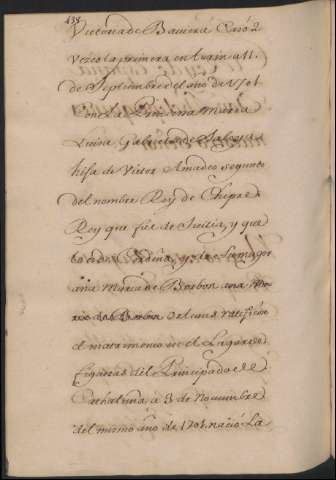 438
Victoria de Baviera. Casó 2
Vezes la primera en Turin a 11.
de Septiembre el año de 1701
con la Princesa Maria
Luisa Gabriela de Saboya
hija de Victor Amadeo segundo
del nombre Rey de Chipre
Rey que fue de Sicilia, y que
lo es de Cerdeña, y de su muger
ana Maria de Borbon ana Ma
ria de Borbon el cual ratificó
el matrimonio en el Lugar de
Figueras del Principado de
Cathaluña a 3 de Noviembre
del mismo año de 1701. nació La